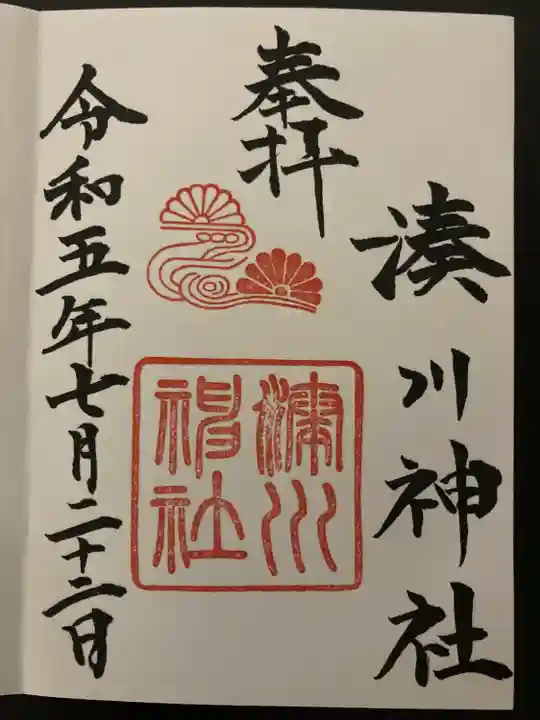 湊川神社
奉拝
湊川神社
令和五年七月二十二日